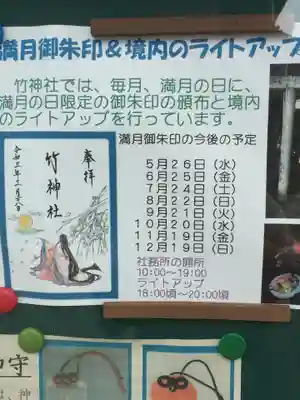 満月御朱印&境内のライトアップ
竹神社では、毎月、満月の日に、
満月の日限定の御朱印の頒布と境内
のライトアップを行っています。
満月御朱印の今後の予定
5月26日(水)
6月25日(金)
7月24日(土)
8月22日(日)
9月21日(火)
10月20日(水)
11月19日(金)
12月19日(日)
社務所の開所
10:00~19:00
ライトアップ
18:00頃~20:00頃
奉拝
竹神社
守